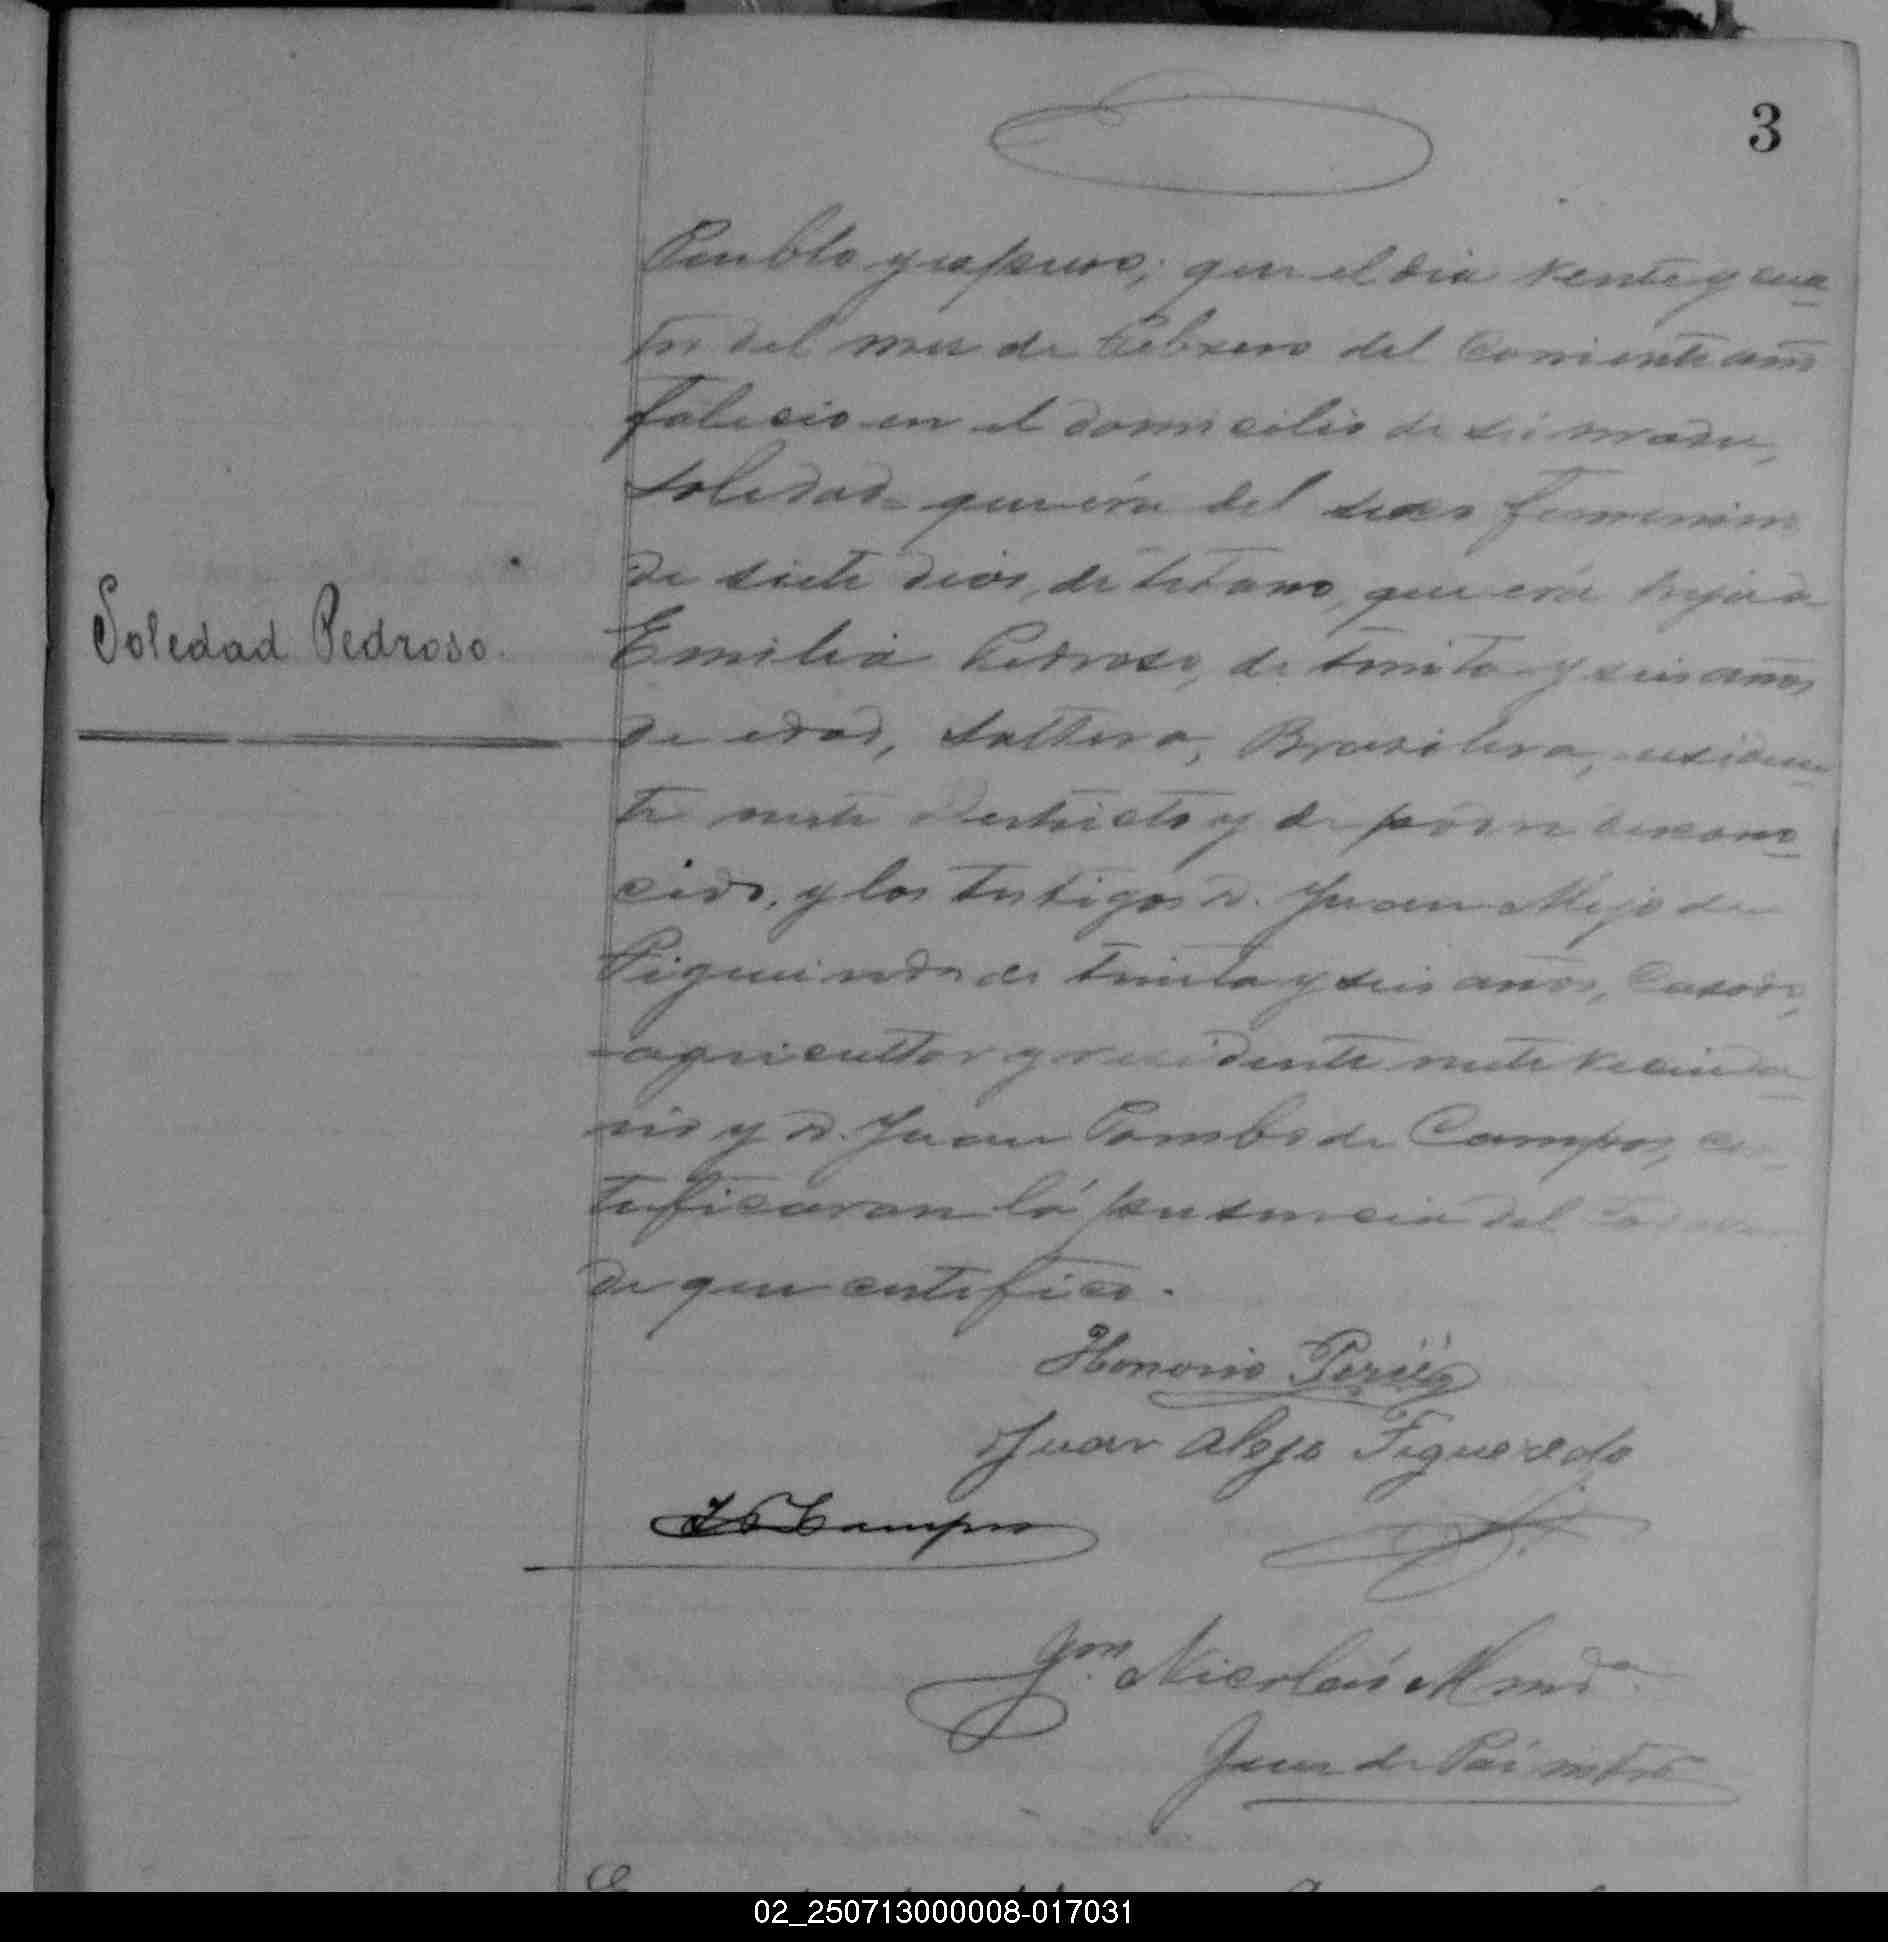 3
Pueblo y espuso; que el dia vente y cua-
tro del mes de Febrero del corriente año
falecio en el domicilio de su madre,
Soledad que era del sexo femenino
de siete dias, de tetano, que era hija de
Emilia Pedroso, de treinta y seis años
Soledad Pedroso.
de edad, soltera, Brasilera, residen-
te neste Destricto y de padre descono-
cido, y los testigos D. Juan Alejo de
Figueiredo de treinta y seis años, casado,
agricultor y residente neste vecinda-
rio y D. Juan Pombo de Campos, cer-
tificaron la presencia del
de que certifico.
Honorio
Juan Alejo Figueredo
J P Campos
Nicolás
Juez de Paz
02_250713000008-017031